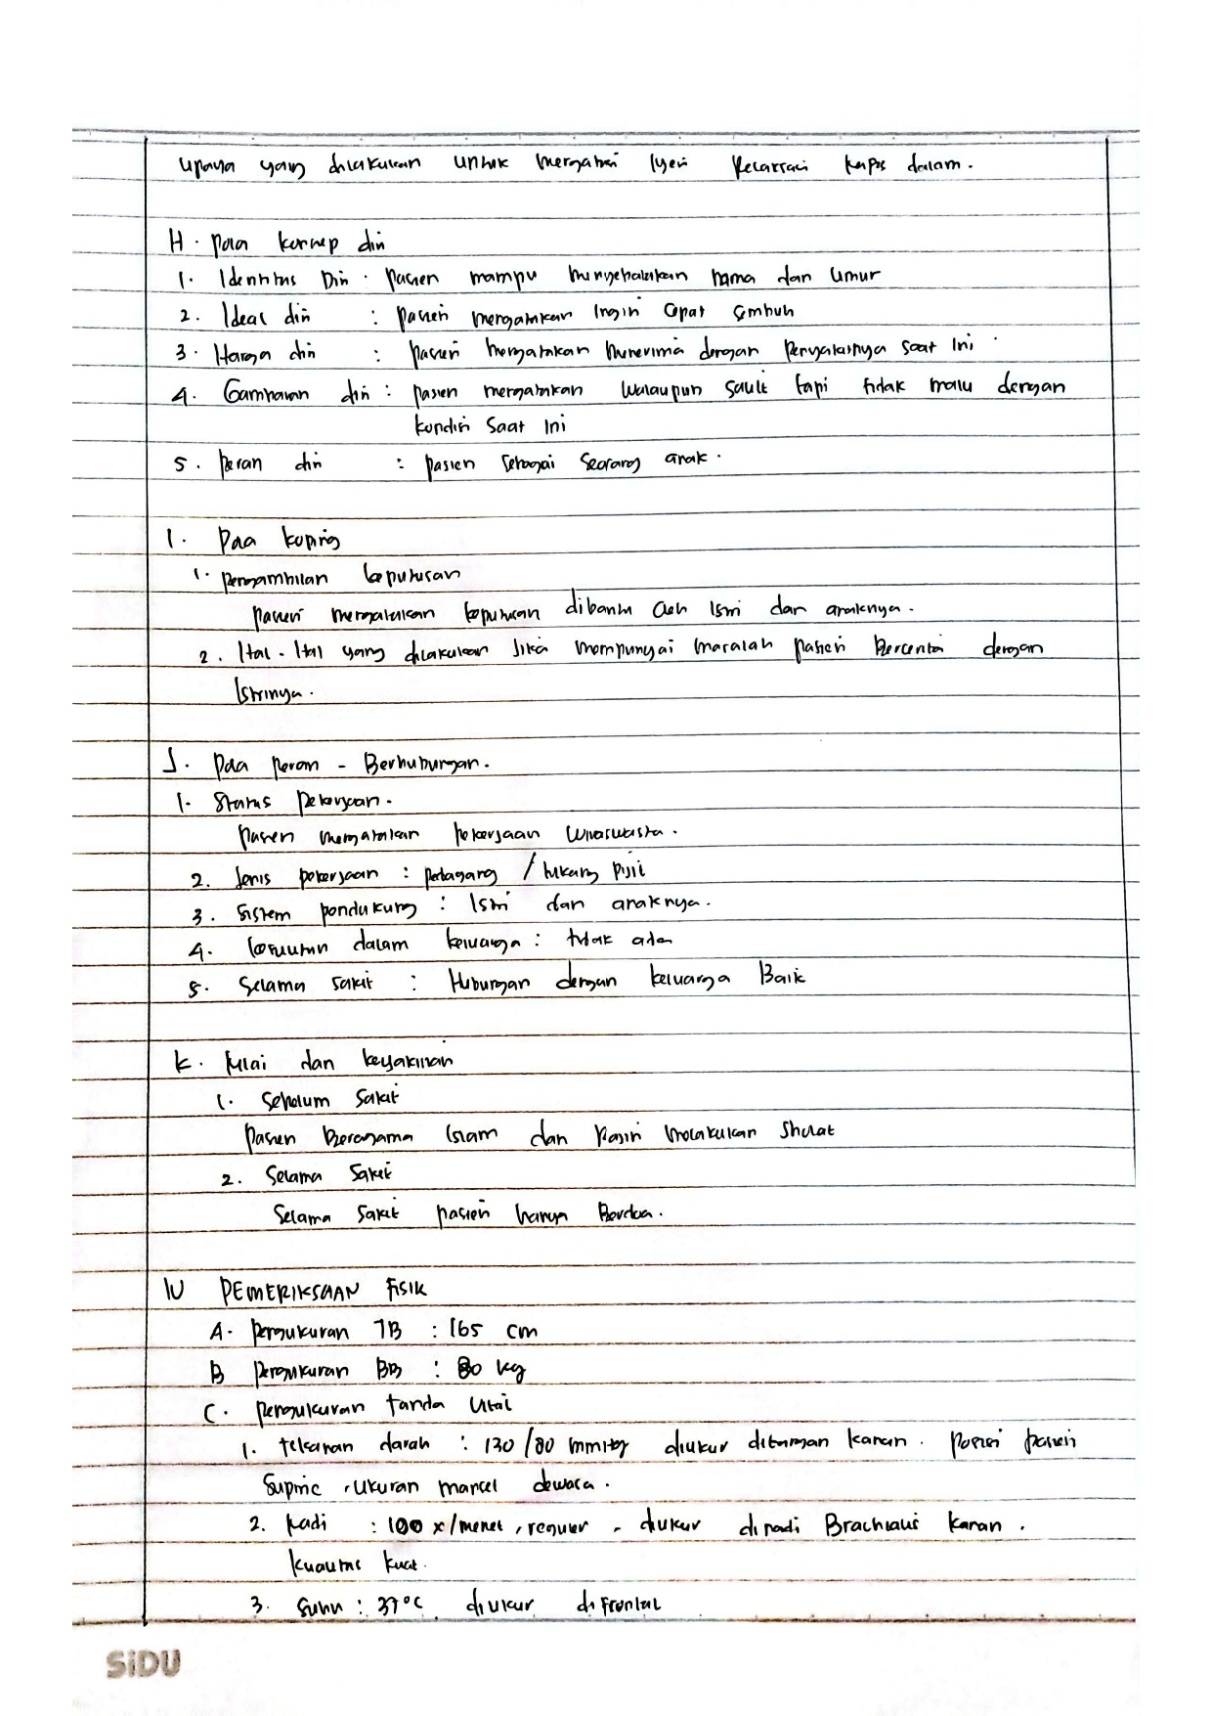 upaya yang dilakukan untuk mengatasi nyeri Relaksasi napas dalam.
H. pola konsep diri
1. Identitas Diri : pasien mampu menyebutkan nama dan umur
2. Ideal diri : pasien mengatakan Ingin cepat sembuh
3. Harga diri : pasien mengatakan menerima dengan penyakitnya saat Ini
4. Gambaran diri : pasien mengatakan walaupun sakit tapi tidak malu dengan
kondisi saat Ini
5. peran diri : pasien sebagai seorang anak.
I. Pola koping
1. pengambilan keputusan
pasien mengatakan keputusan dibantu oleh Istri dan anaknya.
2. Hal-Hal yang dilakukan Jika mempunyai masalah pasien Bercerita dengan
Istrinya.
J. Pola peran - Berhubungan.
1. Status pekerjaan.
pasien mengatakan pekerjaan wiraswasta.
2. Jenis pekerjaan : pedagang / tukang pijit
3. Sistem pendukung : Istri dan anaknya.
4. kesulitan dalam keluarga : tidak ada
5. Selama sakit : Hubungan dengan keluarga Baik
K. Nilai dan keyakinan
1. Sebelum Sakit
Pasien Beragama Islam dan Rajin melakukan Sholat
2. Selama Sakit
Selama Sakit pasien hanya Berdoa.
IV PEMERIKSAAN FISIK
A. Pengukuran TB : 165 cm
B Pengukuran BB : 80 kg
C. Pengukuran tanda Vital
1. tekanan darah : 130/80 mmHg diukur ditangan kanan. posisi pasien
Supine, Ukuran manset dewasa.
2. Nadi : 100 x/menet, reguler, diukur di nadi Brachialis kanan.
kualitas kuat.
3. Suhu : 37°C diukur di Frontal
SiDU